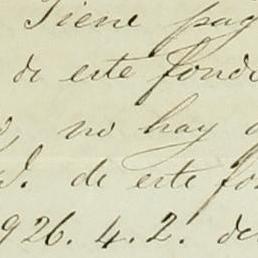 Tiene pag
de este fondo
no hay
de este fo
926. 4. 2. de